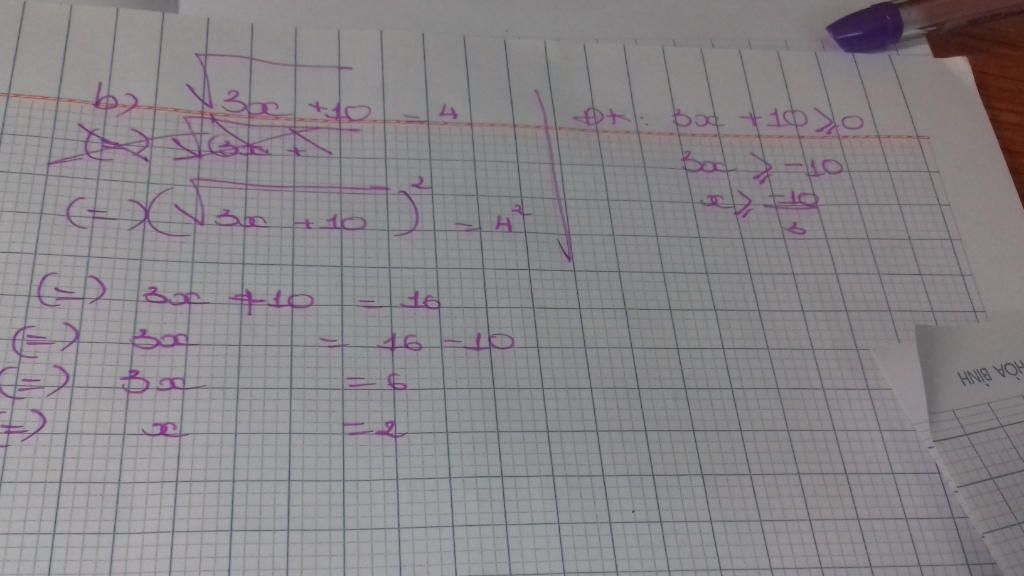 b) √(3x + 10) = 4
(=) (√(3x + 10))² = 4²
(=) 3x + 10 = 16
(=) 3x = 16 - 10
(=) 3x = 6
(=) x = 2
3x + 10 ≥ 0
3x ≥ -10
x ≥ -10/3
HÒA BÌNH